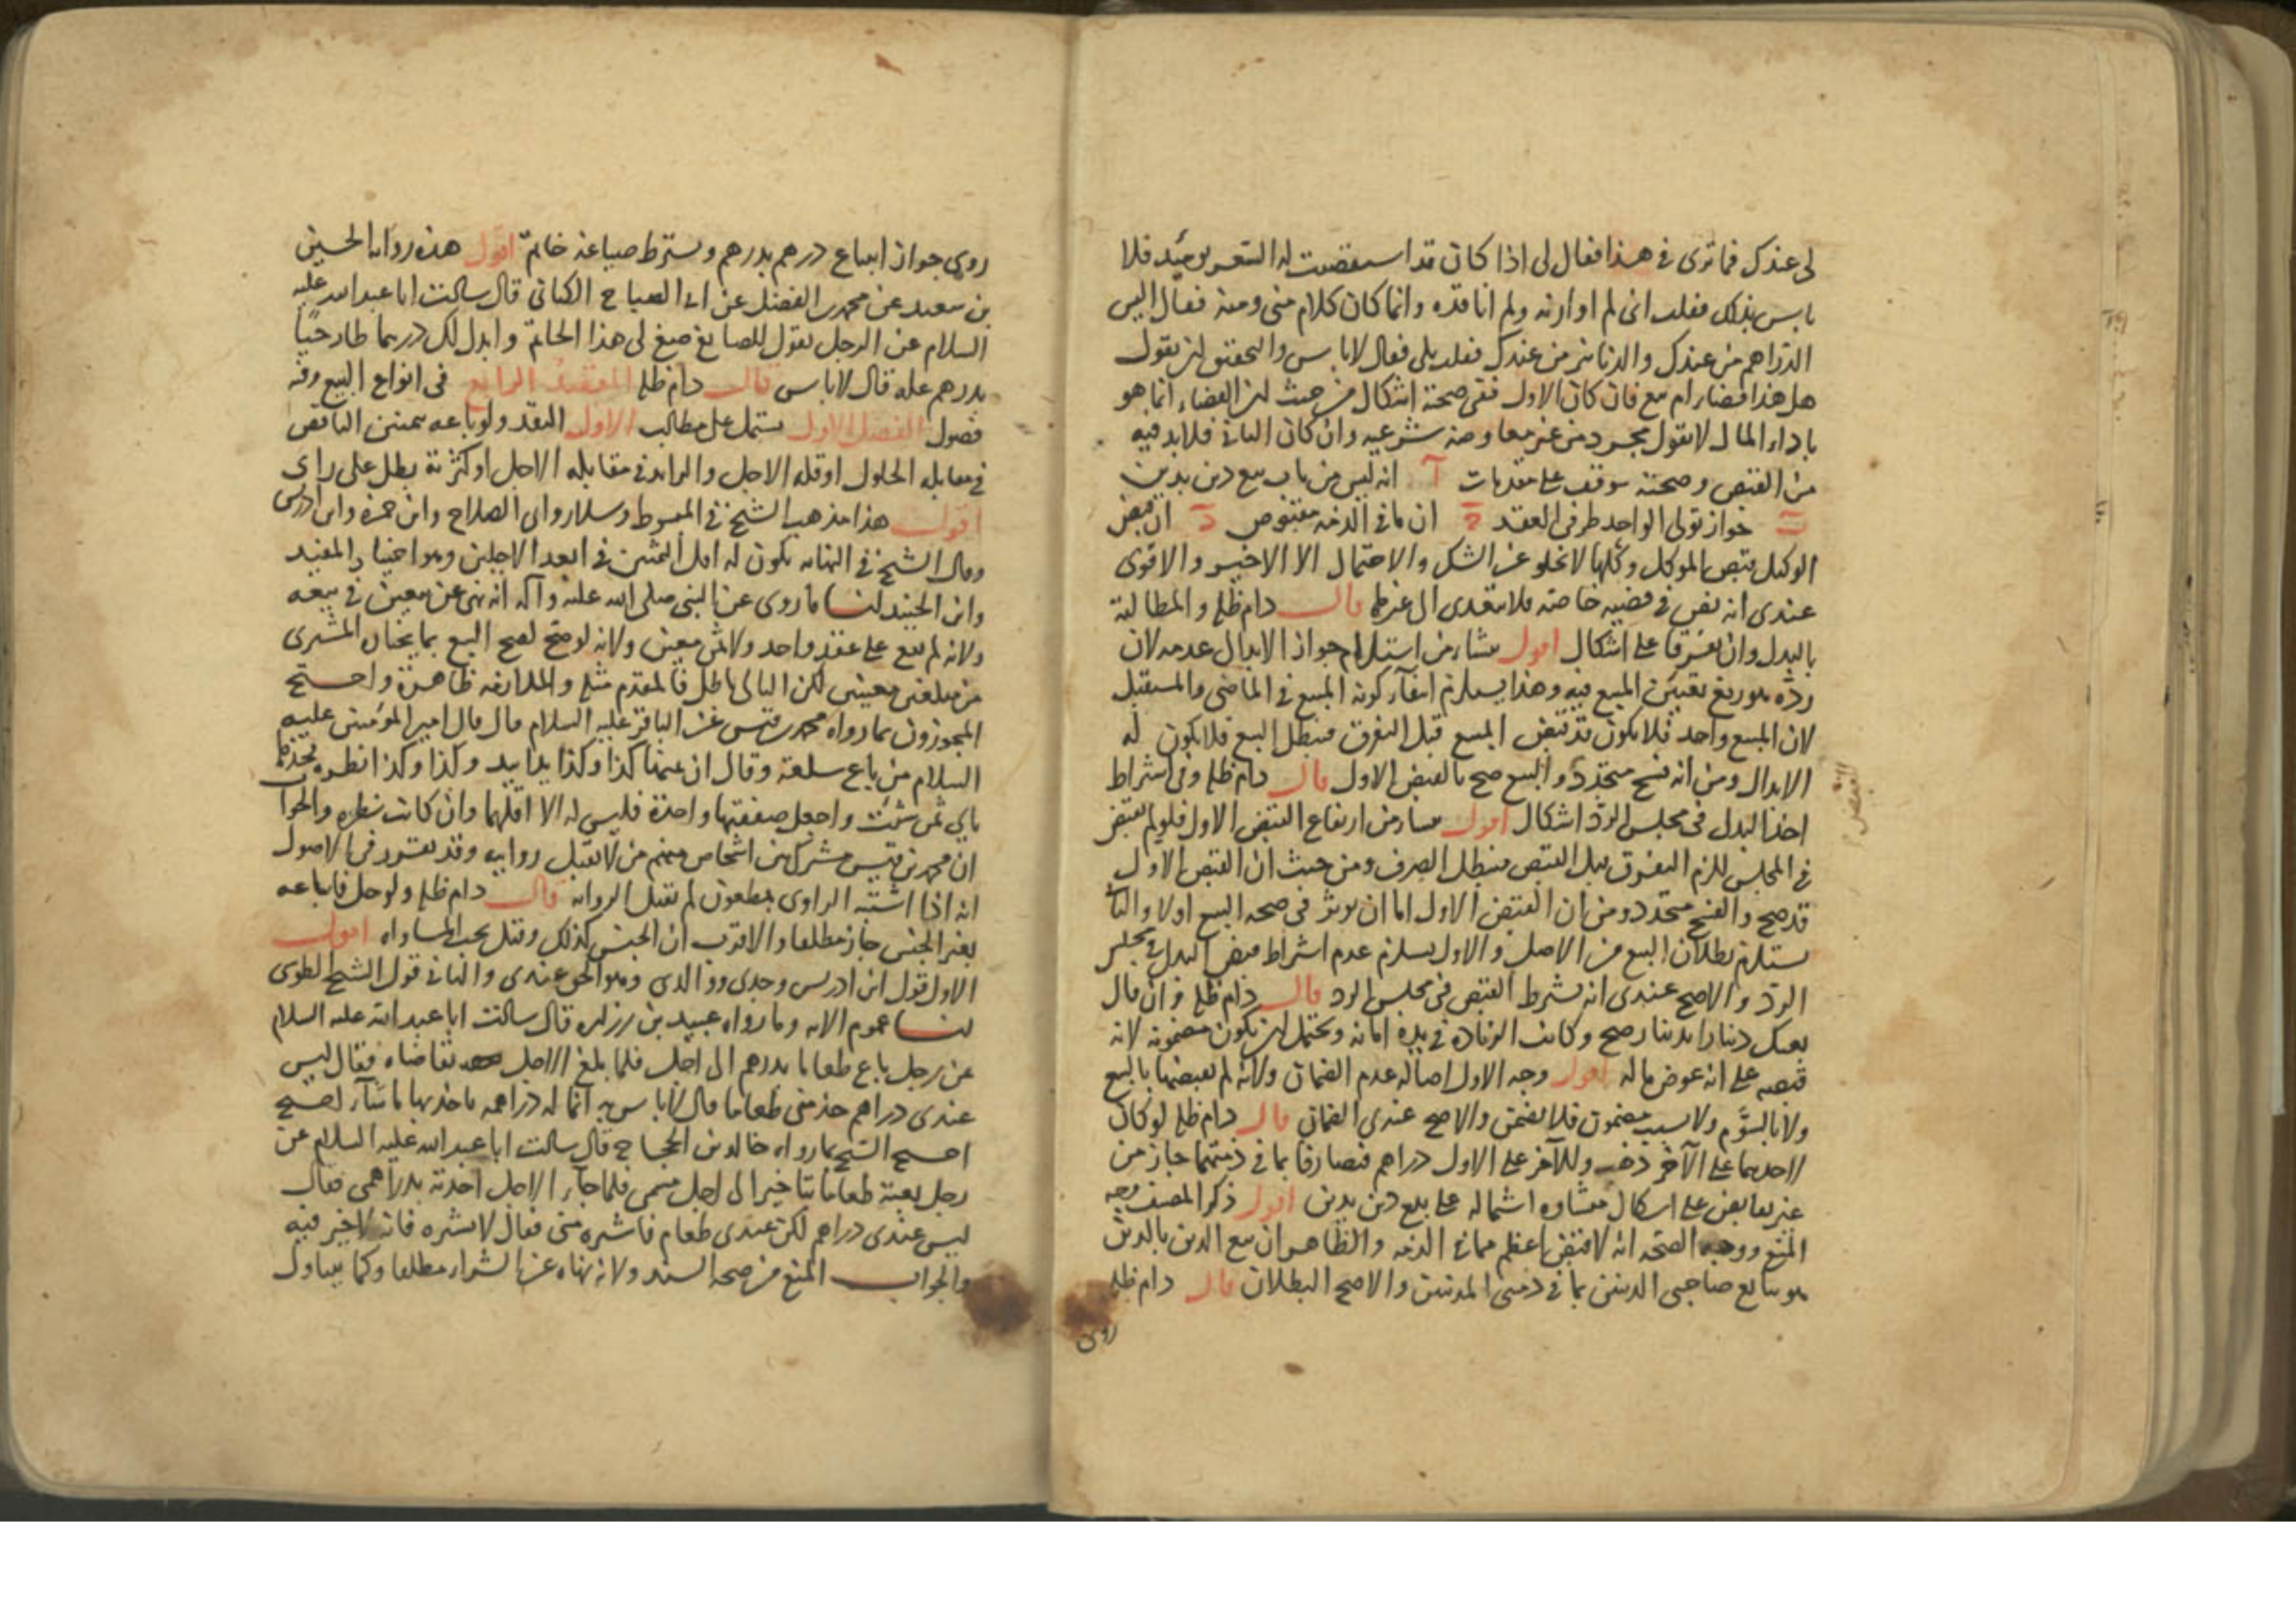 لى عندك فما ترى في هذا فقال لى اذا كان قد استقضيت له السعر يومئذ فلا
باس بذلك فقلت انى لم اوازنه ولم اناقده وانما كان كلام منى ومنه فقال اليس
الدراهم من عندك والدنانير من عندك فقلت بلى فقال لا باس والتحقيق ان يقول
هل هذا قضاء ام بيع فان كان الاول ففى صحته اشكال من حيث ان القضاء انما هو
باداء المال لا بقول مجرد من غير معاوضة شرعيه وان كان الثانى فلابد فيه
من القبض وصحته موقف على مقدمات آ انه ليس من باب بيع دين بدين
ب جواز تولى الواحد طرفى العقد ج ان ما في الذمه مقبوض د ان قبض
الوكيل قبض الموكل وكلها لا تخلو عن الشك والاحتمال الا الاخير والاقوى
عندى انه نص في قضيه خاصه فلا يتعدى الى غيرها قال دام ظله والمطالبة
بالبدل وان تفرقا على اشكال اقول منشاء من استلزام جواز الابدال عدمه لان
رده يوريغ تعيين المبيع فيه وهذا يستلزم انتفاء كونه المبيع في الماضى والمستقبل
لان المبيع واحد فلا يكون قد قبض المبيع قبل التفرق فيبطل البيع فلا يكون له
الابدال ومن انه فسخ متجدد والبيع صح بالقبض الاول قال دام ظله وفى اشتراط
اخذ البدل فى مجلس الرد اشكال اقول منشاء من ارتفاع القبض الاول فلو لم يقبض
في المجلس للزم التفرق قبل القبض فيبطل الصرف ومن حيث ان القبض الاول
قد صح والفسخ متجدد ومن ان القبض الاول اما ان يوثر فى صحه البيع اولا والثانى
يستلزم بطلان البيع من الاصل والاول يستلزم عدم اشتراط قبض البدل في مجلس
الرد والاصح عندى انه يشترط القبض فى مجلس الرد قال دام ظله وان قال
بعتك دينارا بدينار صح وكانت الزيادة في يده امانه ويحتمل ان يكون مضمونه لانه
قبضه على انه عوض ماله اقول وجه الاول اصالة عدم الضمان ولانه لم يقبضها بالبيع
ولا بالسوم ولا بسبب مضمون فلا يضمن والاصح عندى الضمان قال دام ظله لو كان
لاحدهما على الآخر ذهب وللآخر على الاول دراهم فتصارفا بما في ذمتهما جاز من
غير تقابض على اشكال منشاوه اشتماله على بيع دين بدين اقول ذكر المصنف وجه
المنع ووجه الصحه انه لا قبض اعظم مما في الذمه والظاهر ان بيع الدين بالدين
هو تبايع صاحبى الدينين بما في ذمتى المدينين والاصح البطلان قال دام ظله
روى
روى جواز ابتياع درهم بدرهم وشترط صياغه خاتم اقول هذه رواها الحسين
بن سعيد عن محمد بن الفضيل عن ابى الصباح الكنانى قال سالت ابا عبد الله عليه
السلام عن الرجل يقول للصايغ صغ لى هذا الخاتم وابدل لك درهما طازجيا
بدرهم غله قال لا باس قال دام ظله المقصد الرابع فى انواع البيع وفيه
فصول الفصل الاول يشتمل على مطالب الاول النقد ولو باعه بثمنين الناقص
في مقابلة الحلول او قلة الاجل والزايد في مقابلة الاجل او كثرته بطل على راى
اقول هذا مذهب الشيخ في المبسوط وسلار وابى الصلاح وابن حمزة وابن ادريس
وقال الشيخ في النهايه يكون له اقل الثمنين في ابعد الاجلين وهو اختيار المفيد
وابن الجنيد لنا ما روى عن النبى صلى الله عليه وآله انه نهى عن بيعين في بيعه
ولانه لم يقع على عقد واحد ولا ثمن معين ولانه لو صح لصح البيع بما يختاره المشترى
من مبلغين معينين لكن التالى باطل فالمقدم مثله والملازمه ظاهرة واحتج
المجوزون بما رواه محمد بن قيس عن الباقر عليه السلام قال قال امير المؤمنين عليه
السلام من باع سلعة وقال ان ثمنها كذا وكذا يدا بيد وكذا وكذا نظره فخذها
باي ثمن شئت واجعل صفقتها واحدة فليس له الا اقلهما وان كانت نظره والجواب
ان محمد بن قيس مشترك بين اشخاص منهم من لا تقبل روايته وقد تقرر فى الاصول
انه اذا اشتبه الراوى بمطعون لم تقبل الروايه قال دام ظله ولو حل فابتاعه
بغير الجنس جاز مطلقا والاقرب ان الجنس كذلك وقيل يجب المساواه اقول
الاول قول ابن ادريس وجدى ووالدى وهو الحق عندى والثانى قول الشيخ الطوسى
لنا عموم الايه وما رواه عبيد بن زراره قال سالت ابا عبد الله عليه السلام
عن رجل باع طعاما بدرهم الى اجل فلما بلغ الاجل تقاضاه فقال ليس
عندى دراهم خذ منى طعاما قال لا باس به انما له دراهمه ياخذ بها ما شاء
احتج الشيخ بما رواه خالد بن الحجاج قال سالت ابا عبد الله عليه السلام عن
رجل بعته طعاما بتاخير الى اجل مسمى فلما جاء الاجل اخذته بدراهمى فقال
ليس عندى دراهم لكن عندى طعام فاشتره منى فقال لا تشتره فانه لا خير فيه
والجواب المنع من صحه السند ولانه نهاه عن الشراء مطلقا وكما يتناول